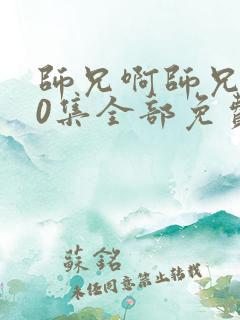 師兄啊師兄
0集全部免費
蘇銘
未經同意禁止轉載